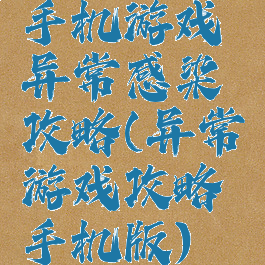 手机游戏
异常感染
攻略(异常
游戏攻略
手机版)